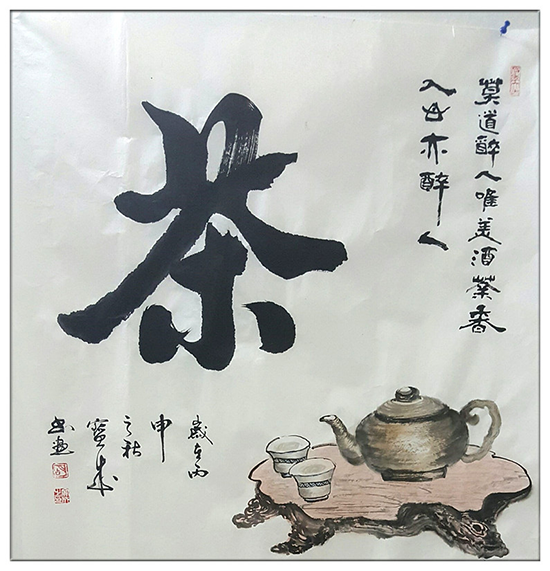 莫道醉人唯美酒茶香
入心亦醉人
茶
歲在丙
申
之秋
寶成
书画